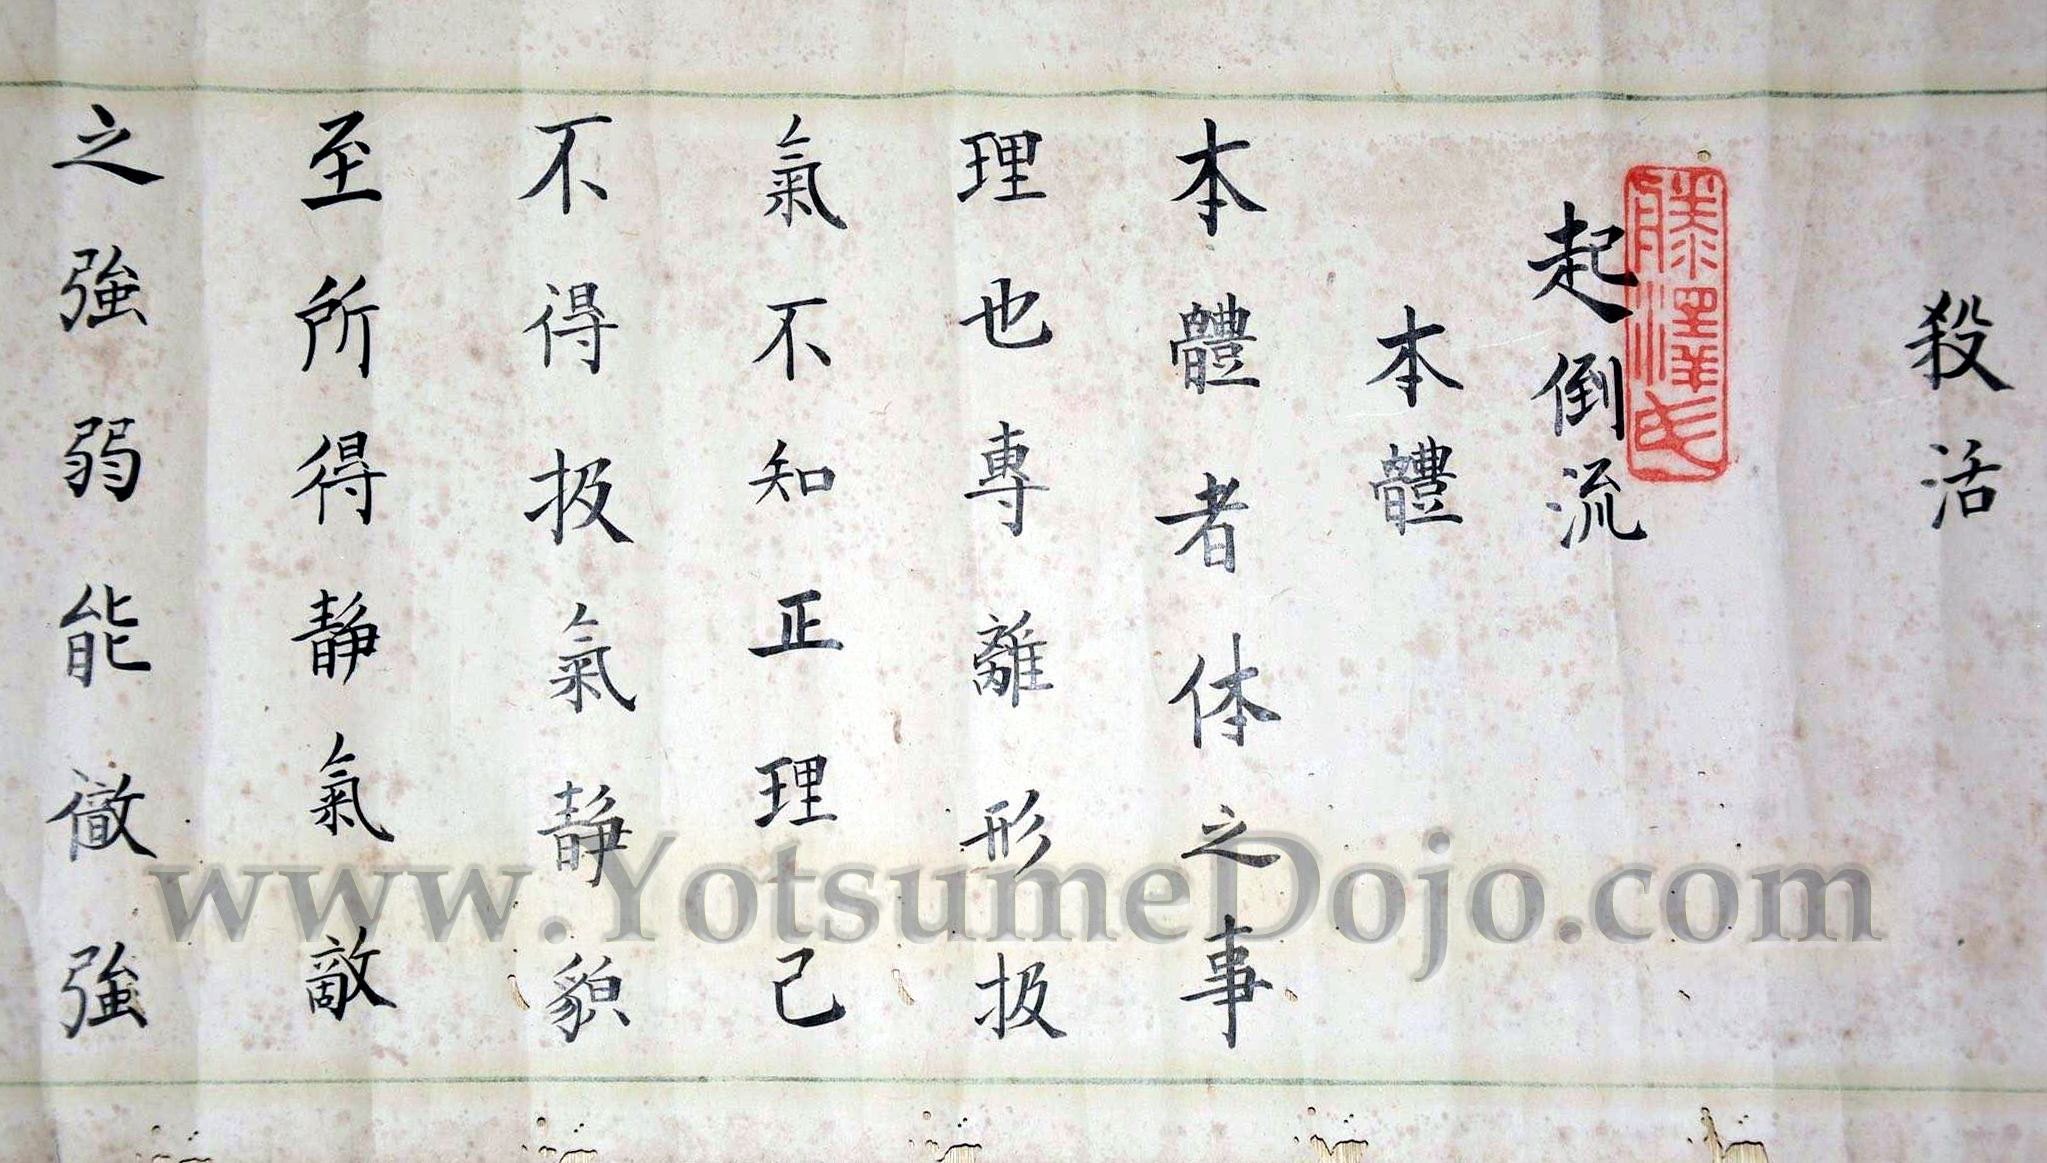 殺活
藤澤氏
起倒流
本體
本體者体之事
理也專離形扱
氣不知正理己
不得扱氣静貌
至所得静氣敵
之強弱能徹強
www.YotsumeDojo.com